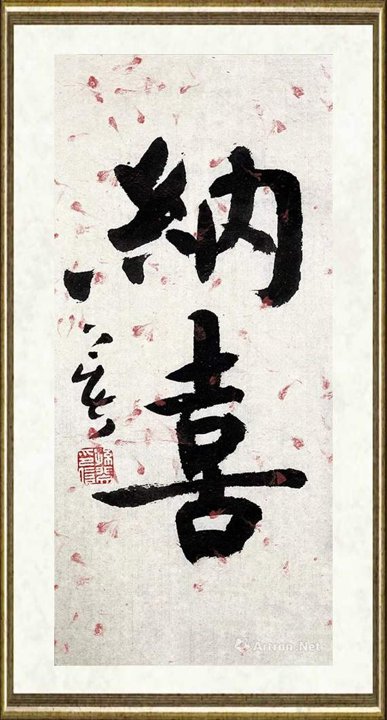 納喜
Artron.Net